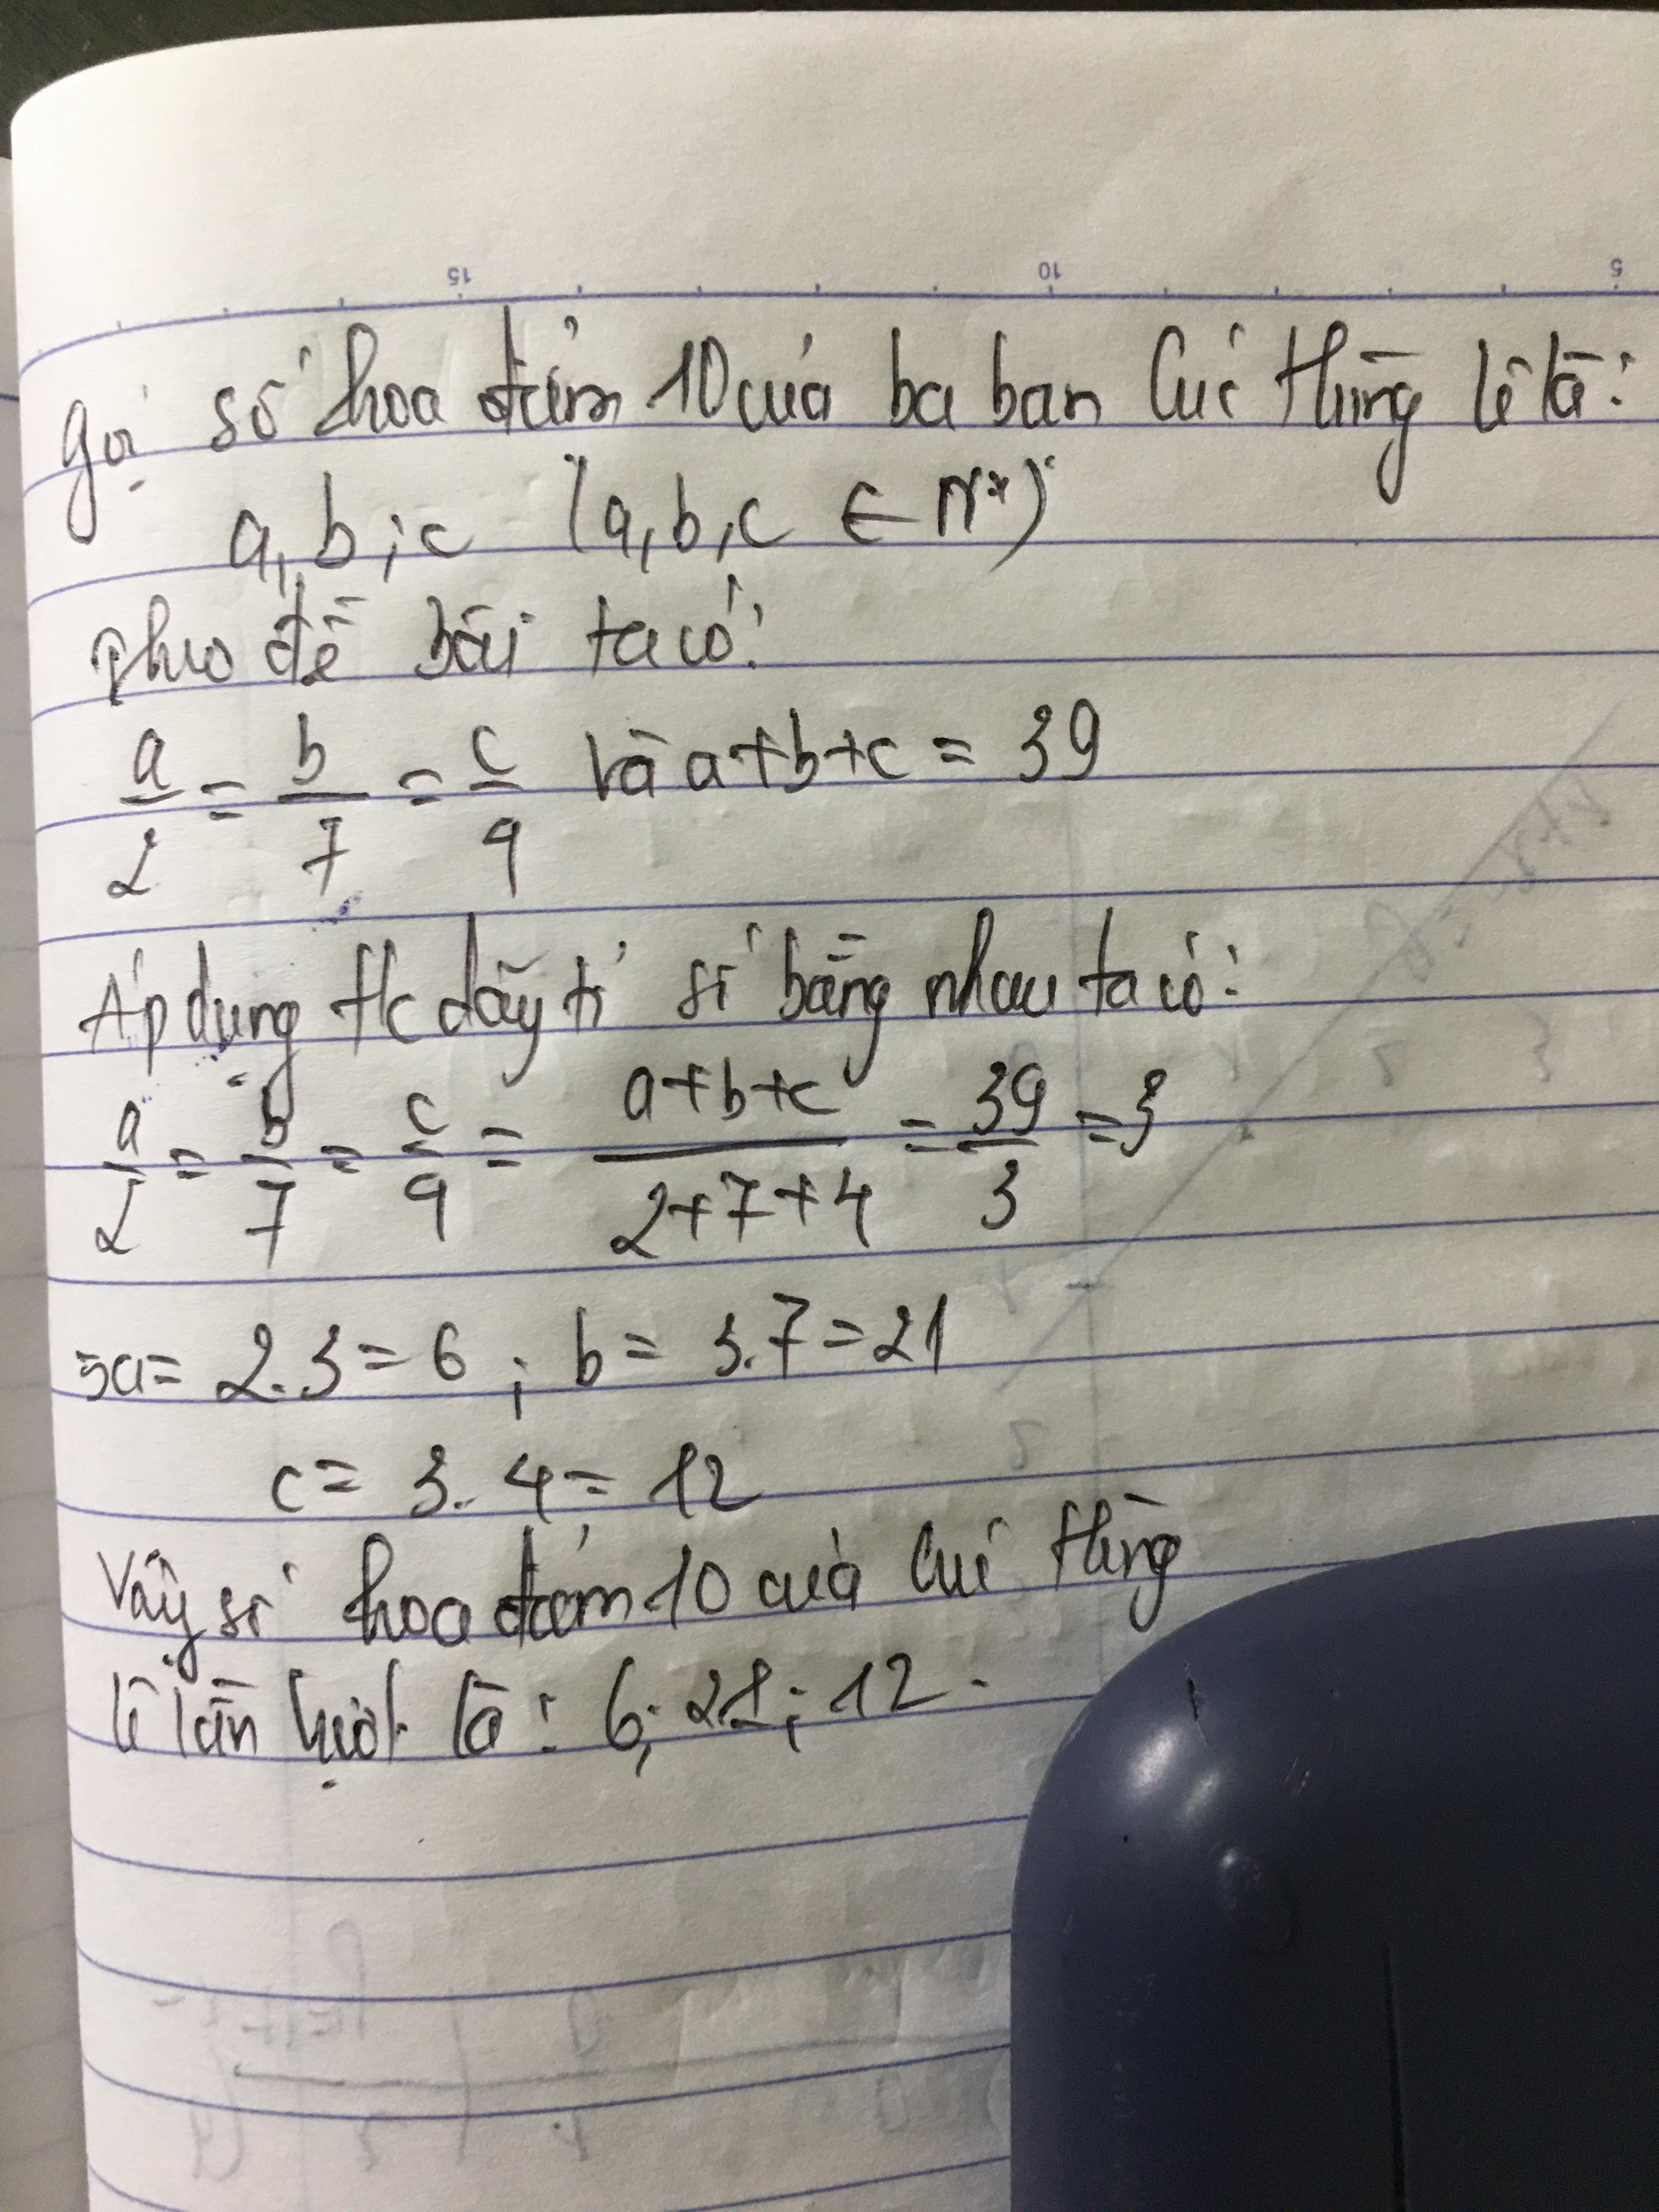 15 10 5
Gọi số hoa điểm 10 của ba bạn Cúc Hùng Lê là:
a, b; c (a, b, c ∈ N*)
Theo đề bài ta có:
a/2 = b/7 = c/4 và a+b+c = 39
Áp dụng t/c dãy tỉ số bằng nhau ta có:
a/2 = b/7 = c/4 = (a+b+c)/(2+7+4) = 39/3 = 3
=> a = 2.3 = 6 ; b = 3.7 = 21
c = 3.4 = 12
Vậy số hoa điểm 10 của Cúc Hùng
Lê lần lượt là: 6; 21; 12.